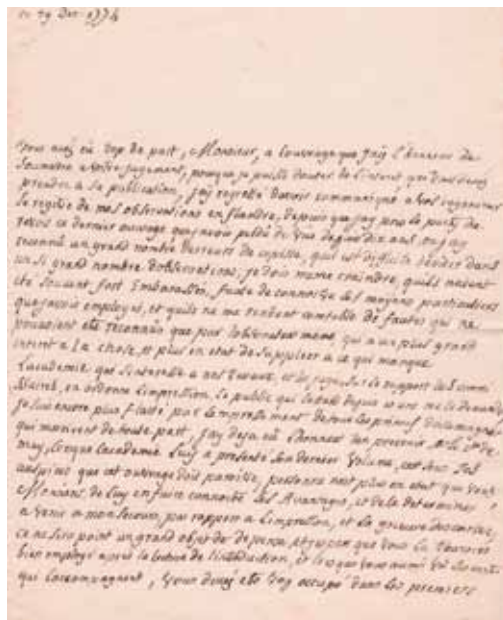 19 Dec 1774
Vous avés eu trop de part, Monsieur, a l'ouvrage que j'ay l'honneur de
soumettre a votre jugement, pour que je puisse douter de l'interet, que vous
prendrés a sa publication, j'ay regretté d'avoir communiqué a vos ingenieurs
le registre de mes observations en flandre, depuis que j'ay
ce dernier ouvrage que j'avois perdu de vue depuis dix ans, ou j'ay
reconnu un grand nombre d'erreurs de copiste, qu'il est difficile d'eviter dans
un si grand nombre d'observations, je dois meme craindre, qu'ils n'ayent
eté souvent fort Embarassés, faute de connoitre les moyens particuliers
que j'avois employés, et qu'ils ne me rendent comtable de fautes qui ne
pouvoient etre reconnues que par l'observateur meme, qui a un plus grand
interet a la chose, et plus en etat de suppleer a ce qui manque
L'academie qui s'interesse a mes travaux, et a sur le rapport des Commi
ssaires, en ordonne l'impression, le public qui l'attend depuis ans me le demande,
je suis encore plus flatté par l'empressement de tous les d'allemagne
qui m'arrivent de toute part, j'ay deja eu l'honneur d'en prevenir M. le de
muy, lorsque l'academie luy a presenté son dernier Volume, c'est sous ses
auspices que cet ouvrage doit paroitre, personne n'est plus en etat que vous
Monsieur, de luy en faire connoitre les Avantages, et de la determiner
a venir a mon secours, par rapport a l'impression, et la gravure des cartes,
ce ne sera point un grand objet de depense, que vous la trouverés
bien employé apres la lecture de l'introduction, et lorsque vous aurés vu
qui l'accompagnent, Vous avés eté trop occupé dans les premiers